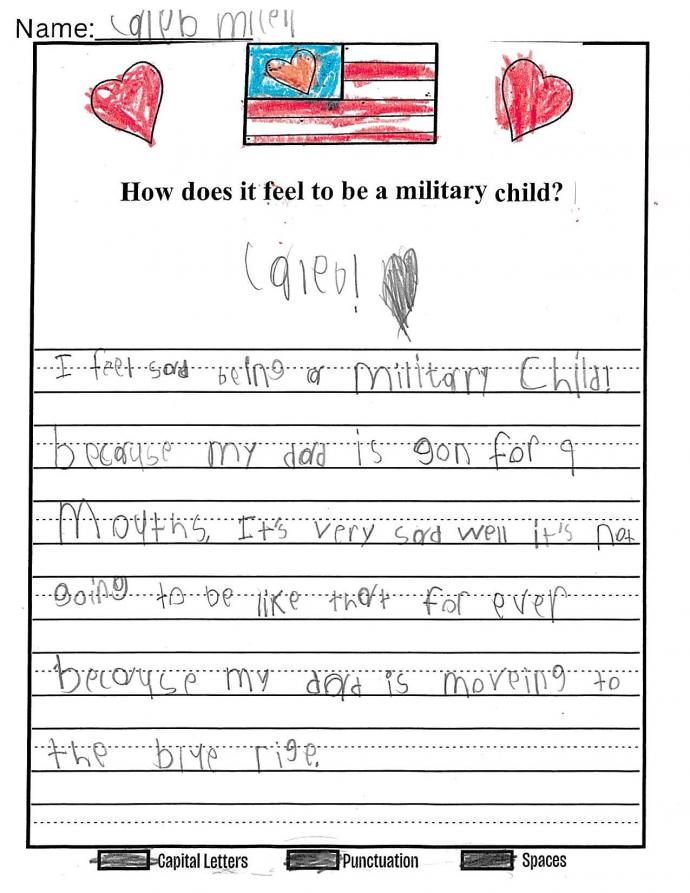 Name: Caleb Mileil
How does it feel to be a military child?
Caleb!
I feel sad being a military Child!
because my dad is gon for 9
Mouths, It's very sad well it's not
going to be like that for ever
because my dad is moveing to
the blue rige.
Capital Letters Punctuation Spaces